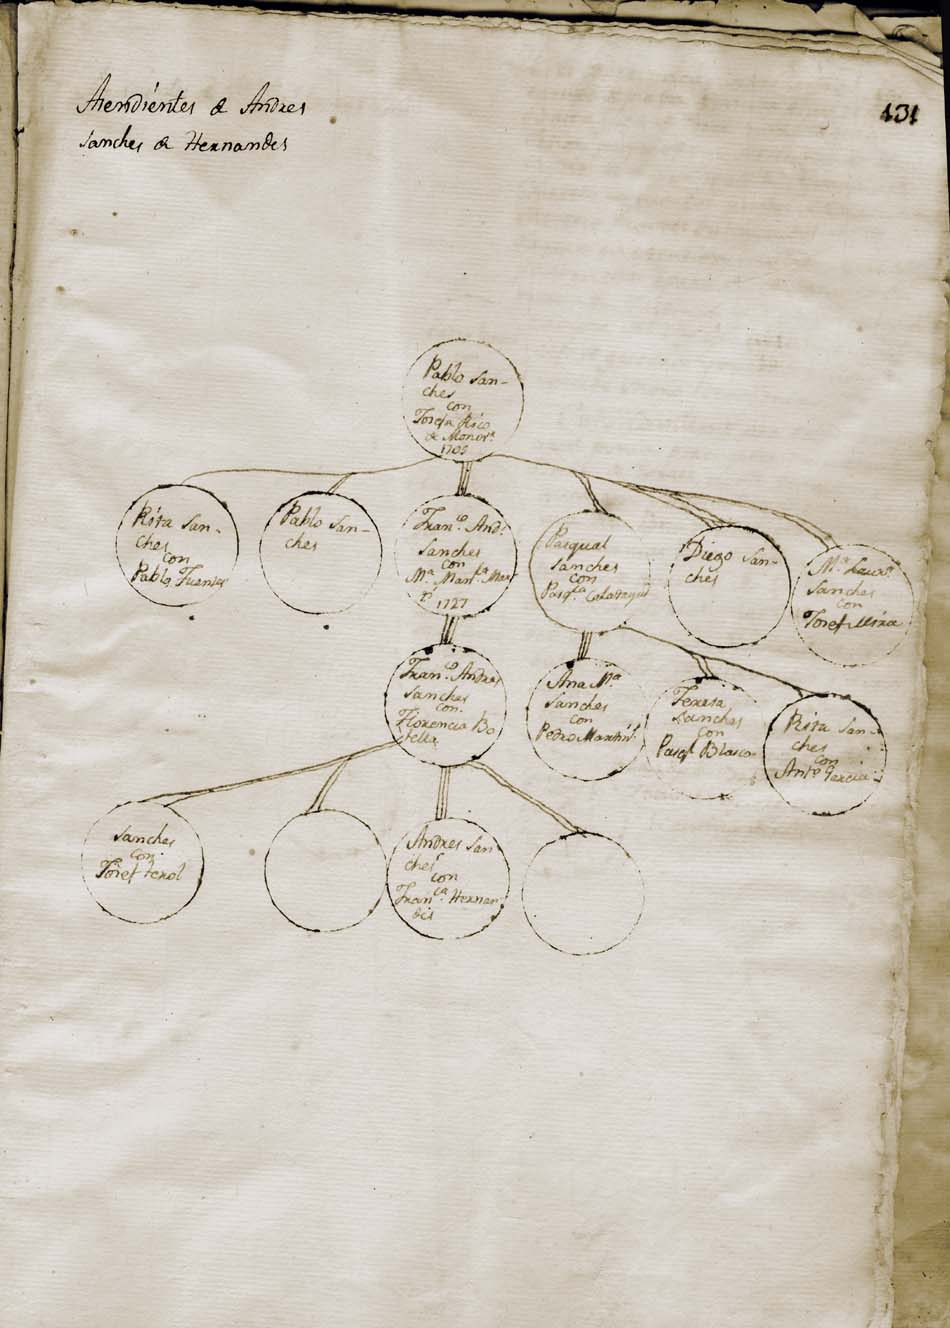 Asendientes de Andres
Sanches de Hernandes
131
Pablo San-
ches
con
Josefa Rico
de Monovr.
1705
Rita San-
ches
con
Pablo Fuentes
Pablo San-
ches
Fran.co And.s
Sanches
con
M.a Man.la
1727
Pasqual
Sanches
con
Pasq.la Calatayud
Diego San-
ches
M.a
Sanches
con
Josef Mira
Fran.co Andres
Sanches
con
Florencia Bo
tella
Ana M.a
Sanches
con
Pedro Martin.s
Teresa
Sanches
con
Pasq.l Blasco
Rita San-
ches
con
Ant.o Garcia
Sanches
con
Josef Terol
Andres San
ches
con
Fran.ca Hernan
des